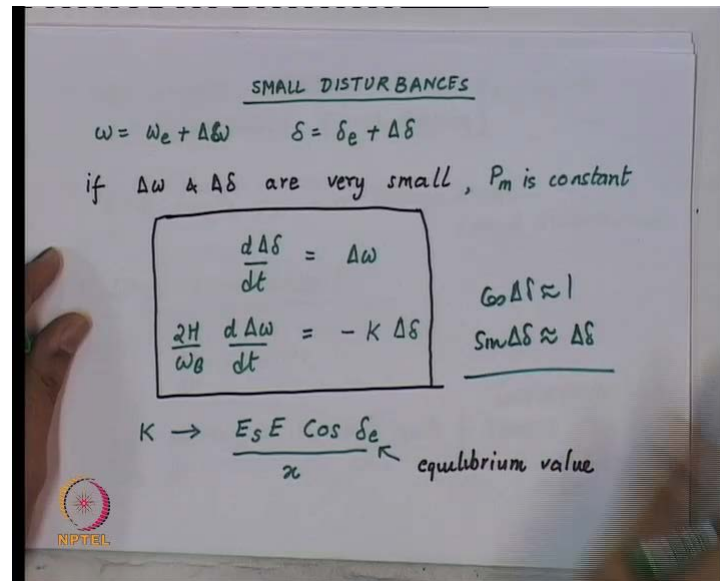 SMALL DISTURBANCES
ω = ωe + Δω δ = δe + Δδ
if Δω & Δδ are very small, Pm is constant
dΔδ/dt = Δω
2H/ωB dΔω/dt = - K Δδ
Cos Δδ ≈ 1
Sin Δδ ≈ Δδ
K → Es E Cos δe / x
equilibrium value
NPTEL